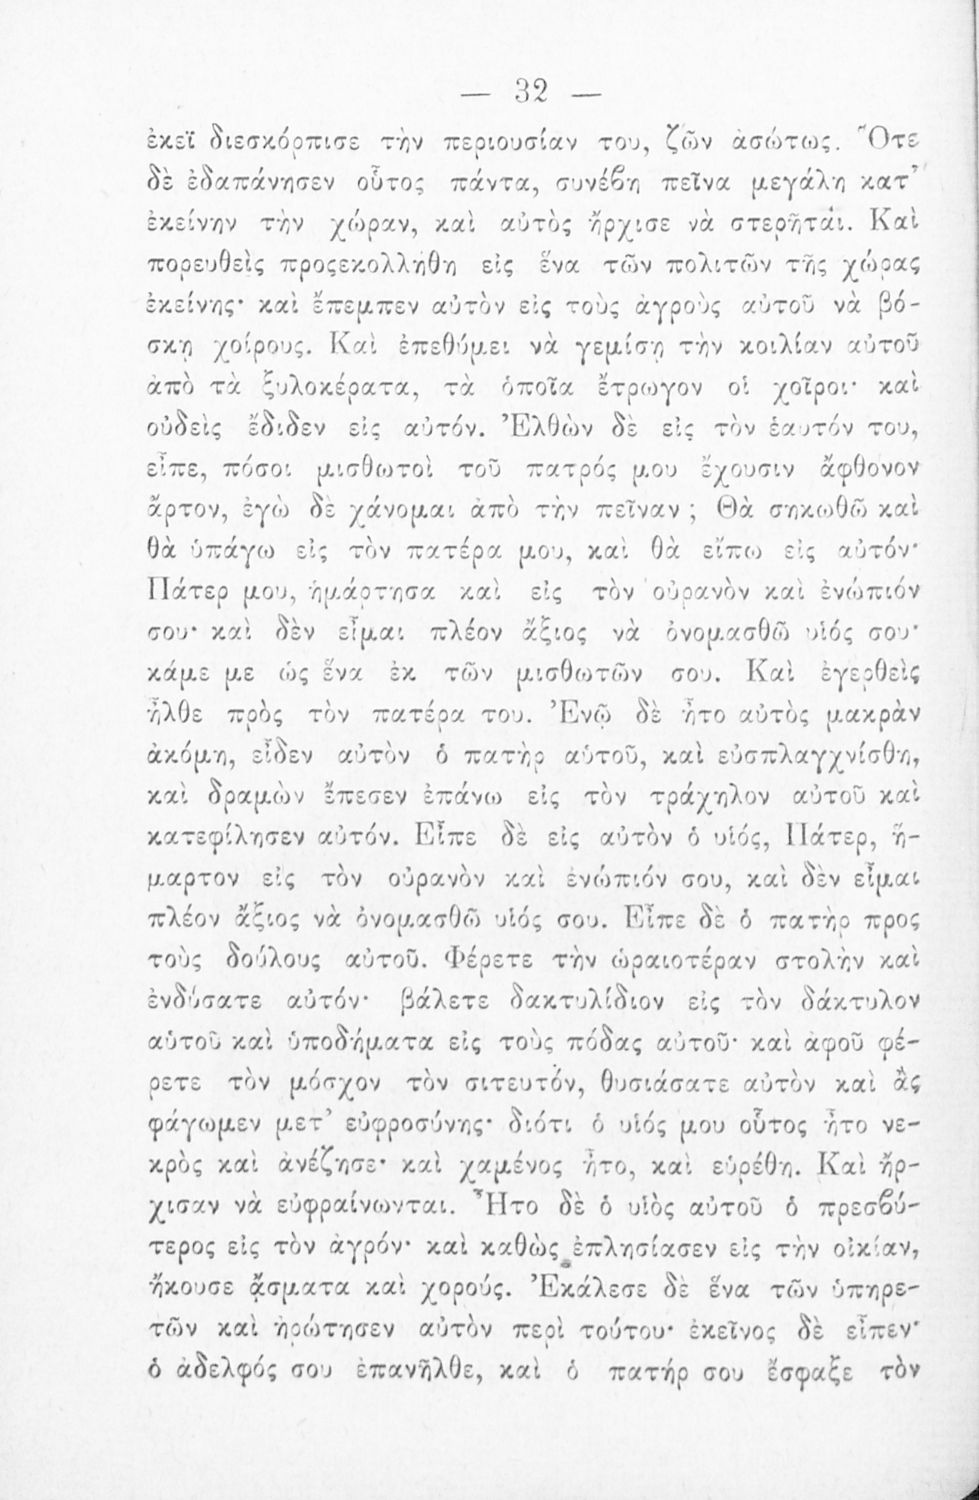 — 32 —
ἐκεῖ διεσκόρπισε τὴν περιουσίαν του, ζῶν ἀσώτως. Ὅτε
δὲ ἐδαπάνησεν οὗτος πάντα, συνέβη πεῖνα μεγάλη κατ’
ἐκείνην τὴν χώραν, καὶ αὐτὸς ἤρχισε νὰ στερῆται. Καὶ
πορευθεὶς προςεκολλήθη εἰς ἕνα τῶν πολιτῶν τῆς χώρας
ἐκείνης· καὶ ἔπεμπεν αὐτὸν εἰς τοὺς ἀγροὺς αὐτοῦ νὰ βό-
σκῃ χοίρους. Καὶ ἐπεθύμει νὰ γεμίσῃ τὴν κοιλίαν αὐτοῦ
ἀπὸ τὰ ξυλοκέρατα, τὰ ὁποῖα ἔτρωγον οἱ χοῖροι· καὶ
οὐδεὶς ἔδιδεν εἰς αὐτόν. Ἐλθὼν δὲ εἰς τὸν ἑαυτόν του,
εἶπε, πόσοι μισθωτοὶ τοῦ πατρός μου ἔχουσιν ἄφθονον
ἄρτον, ἐγὼ δὲ χάνομαι ἀπὸ τὴν πεῖναν ; Θὰ σηκωθῶ καὶ
θὰ ὑπάγω εἰς τὸν πατέρα μου, καὶ θὰ εἴπω εἰς αὐτόν·
Πάτερ μου, ἡμάρτησα καὶ εἰς τὸν οὐρανὸν καὶ ἐνώπιόν
σου· καὶ δὲν εἶμαι πλέον ἄξιος νὰ ὀνομασθῶ υἱός σου·
κάμε με ὡς ἕνα ἐκ τῶν μισθωτῶν σου. Καὶ ἐγερθεὶς
ἦλθε πρὸς τὸν πατέρα του. Ἐνῷ δὲ ἦτο αὐτὸς μακρὰν
ἀκόμη, εἶδεν αὐτὸν ὁ πατὴρ αὑτοῦ, καὶ εὐσπλαγχνίσθη,
καὶ δραμὼν ἔπεσεν ἐπάνω εἰς τὸν τράχηλον αὐτοῦ καὶ
κατεφίλησεν αὐτόν. Εἶπε δὲ εἰς αὐτὸν ὁ υἱός, Πάτερ, ἥ-
μαρτον εἰς τὸν οὐρανὸν καὶ ἐνώπιόν σου, καὶ δὲν εἶμαι
πλέον ἄξιος νὰ ὀνομασθῶ υἱός σου. Εἶπε δὲ ὁ πατὴρ προς
τοὺς δούλους αὐτοῦ. Φέρετε τὴν ὡραιοτέραν στολὴν καὶ
ἐνδύσατε αὐτόν· βάλετε δακτυλίδιον εἰς τὸν δάκτυλον
αὑτοῦ καὶ ὑποδήματα εἰς τοὺς πόδας αὐτοῦ· καὶ ἀφοῦ φέ-
ρετε τὸν μόσχον τὸν σιτευτόν, θυσιάσατε αὐτὸν καὶ ἂς
φάγωμεν μετ’ εὐφροσύνης· διότι ὁ υἱός μου οὗτος ἦτο νε-
κρὸς καὶ ἀνέζησε· καὶ χαμένος ἦτο, καὶ εὑρέθη. Καὶ ἤρ-
χισαν νὰ εὐφραίνωνται. Ἦτο δὲ ὁ υἱὸς αὐτοῦ ὁ πρεσβύ-
τερος εἰς τὸν ἀγρόν· καὶ καθὼς ἐπλησίασεν εἰς τὴν οἰκίαν,
ἤκουσε ᾄσματα καὶ χορούς. Ἐκάλεσε δὲ ἕνα τῶν ὑπηρε-
τῶν καὶ ἠρώτησεν αὐτὸν περὶ τούτου· ἐκεῖνος δὲ εἶπεν·
ὁ ἀδελφός σου ἐπανῆλθε, καὶ ὁ πατήρ σου ἔσφαξε τὸν